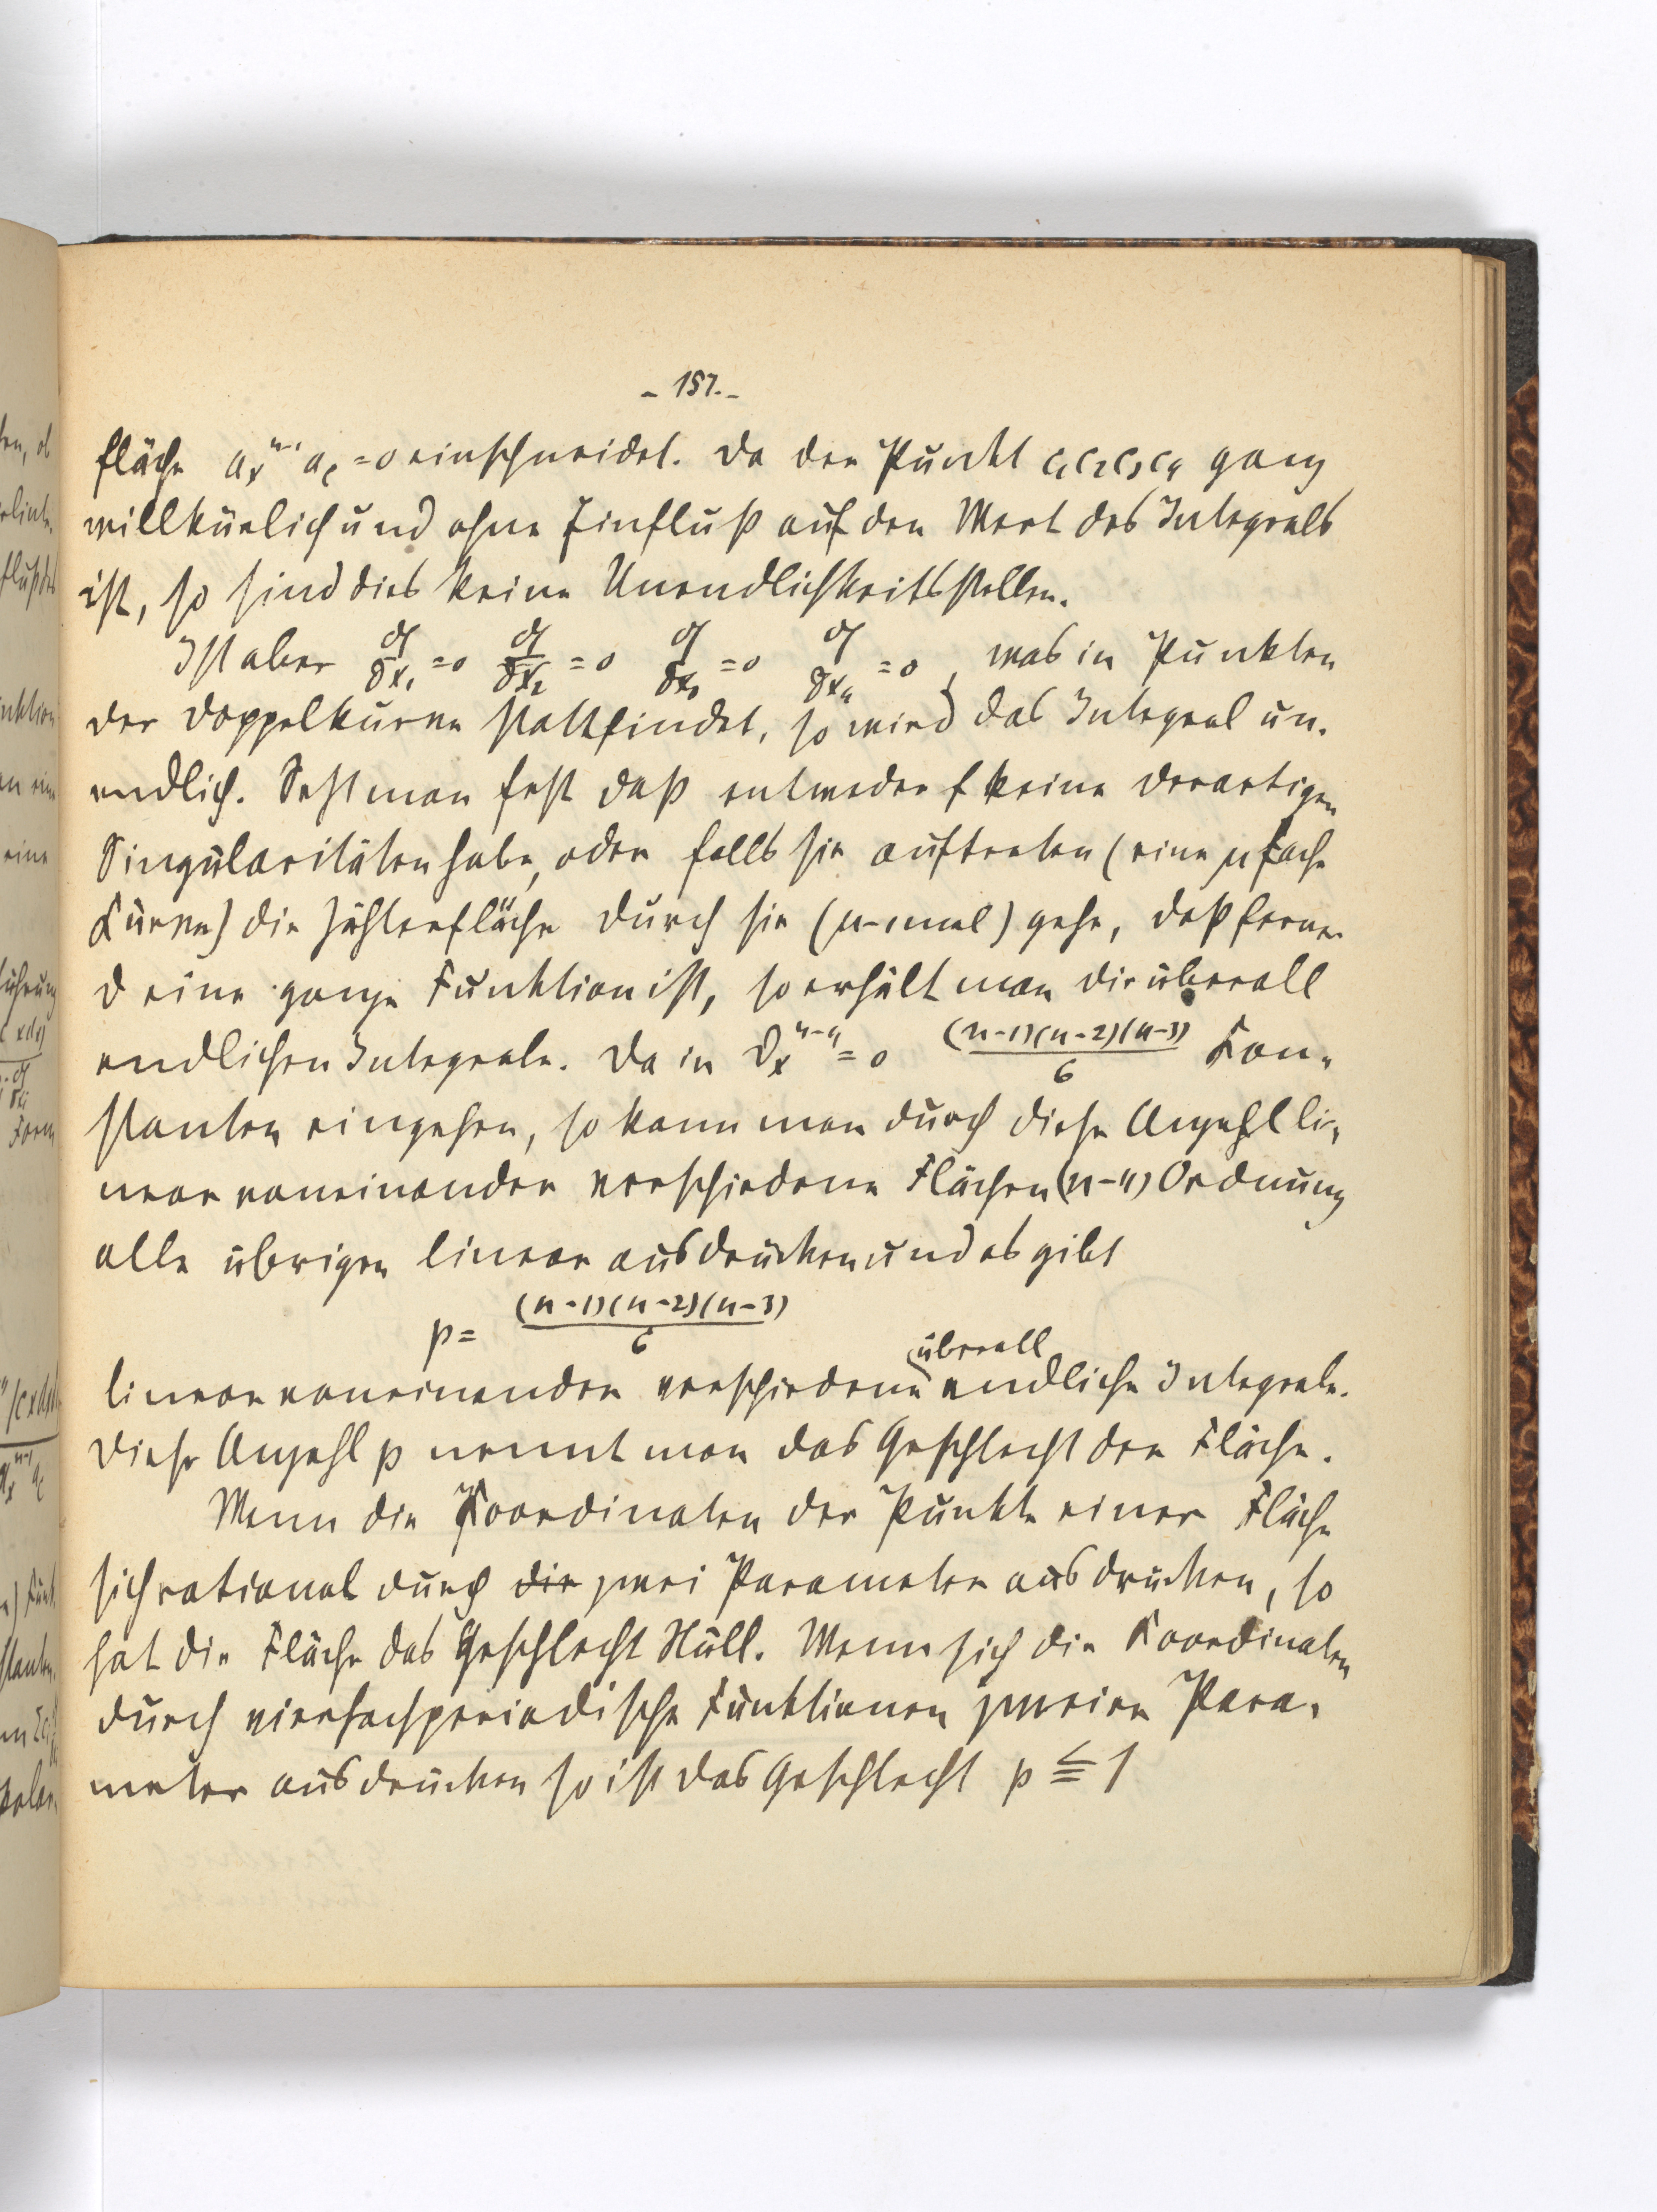 - 157. -
fläche aₓⁿ⁻¹ a_c = 0 einschneidet. Da der Punkt c₁c₂c₃c₄ ganz
willkürlich und ohne Einfluß auf den Wert des Integrals
ist, so sind dies keine Unendlichkeitsstellen.
Ist aber ∂f/∂x₁ = 0 ∂f/∂x₂ = 0 ∂f/∂x₃ = 0 ∂f/∂x₄ = 0, was in Punkten
der Doppelkurve stattfindet, so wird das Integral un-
endlich. Setzt man fest daß entweder f keine derartigen
Singularitäten habe, oder falls sie auftreten (eine μ fache
Kurve) die Zählerfläche durch sie (μ-1 mal) gehe, daß ferner
ϑ eine ganze Funktion ist, so erhält man die überall
endlichen Integrale. Da in ϑₓⁿ⁻⁴ = 0 (n-1)(n-2)(n-3)/6 Kon-
stanten eingehen, so kann man durch diese Anzahl li-
near voneinander verschiedene Flächen (n-4) Ordnung
alle übrigen linear ausdrücken und es gibt
p = (n-1)(n-2)(n-3)/6
linear voneinander verschiedene überall endliche Integrale.
Diese Anzahl p nennt man das Geschlecht der Fläche.
Wenn die Koordinaten der Punkte einer Fläche
sich rational durch die zwei Parameter ausdrücken, so
hat die Fläche das Geschlecht Null. Wenn sich die Koordinaten
durch vierfachperiodische Funktionen zweier Para-
meter ausdrücken so ist das Geschlecht p ≦ 1